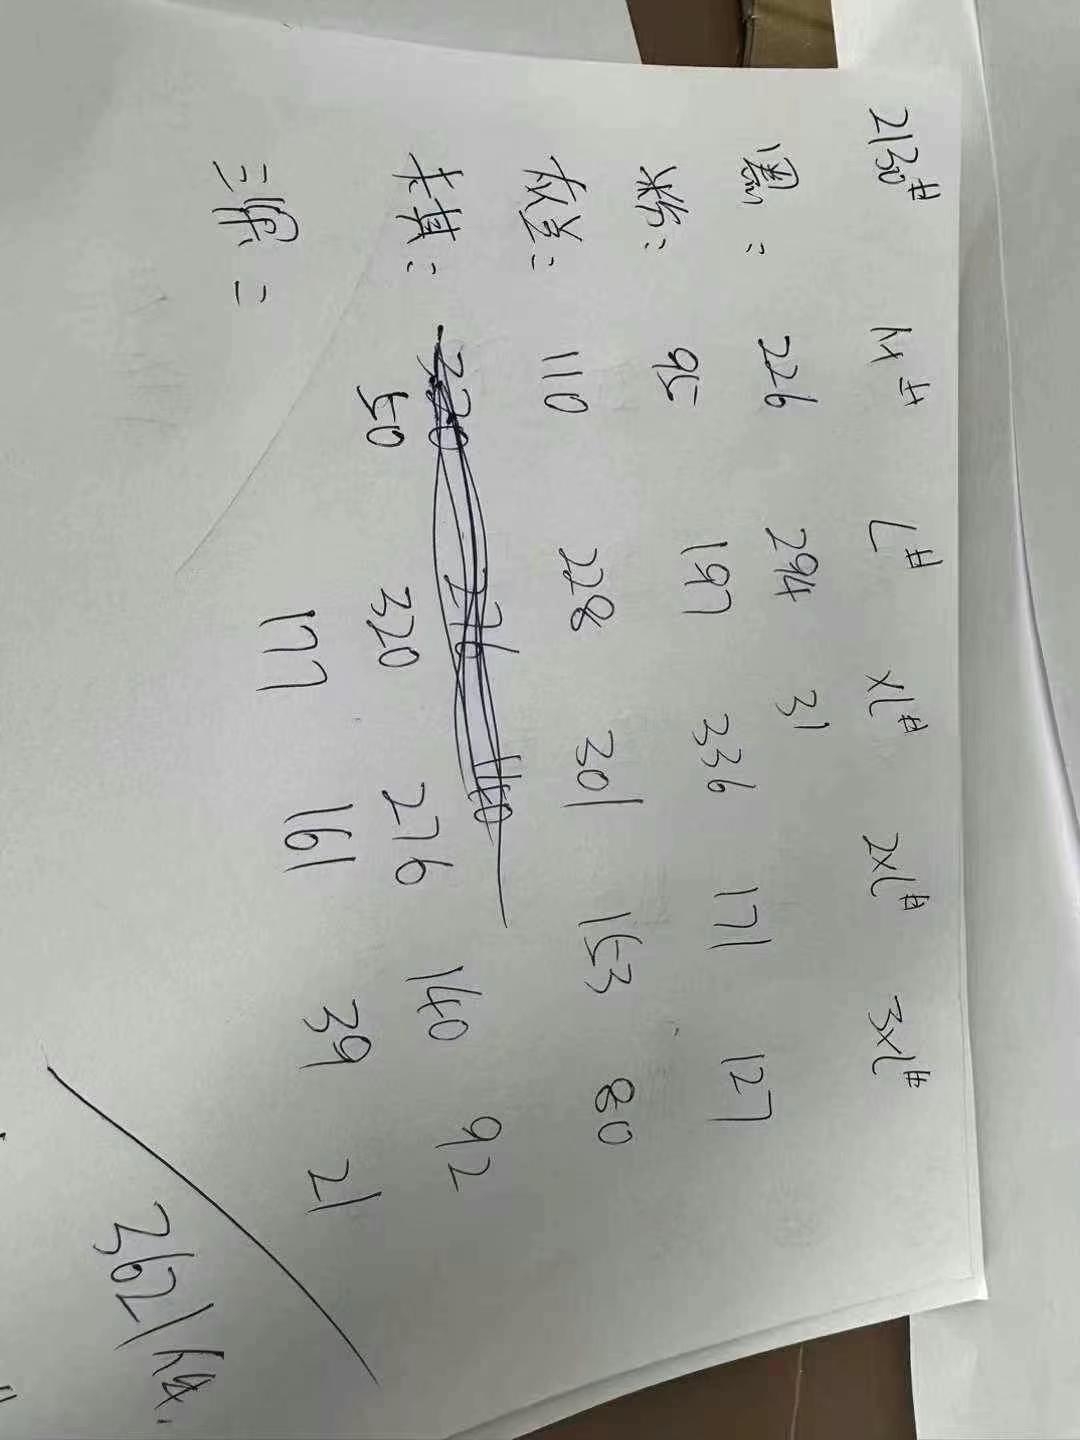 2130# M# L# XL# 2XL# 3XL#
黑: 226 294 31
粉: 95 197 336 171 127
灰兰: 110 228 301 153 80
卡其: 50 320 276 140 92
三眼: 177 161 39 21
3621件.